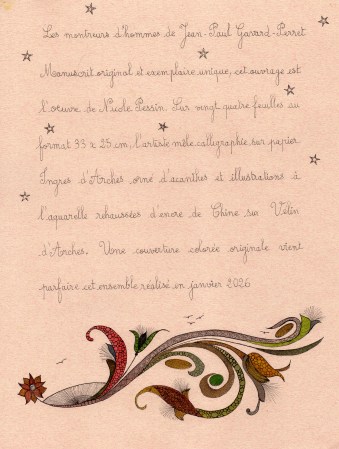 Les montreurs d'hommes de Jean-Paul Gavard-Perret
Manuscrit original et exemplaire unique, cet ouvrage est
l'oeuvre de Nicole Pessin. Sur vingt quatre feuilles au
format 33 x 25 cm, l'artiste mêle calligraphie sur papier
Ingres d'Arches orné d'acanthes et illustrations à
l'aquarelle rehaussées d'encre de Chine sur Vélin
d'Arches. Une couverture colorée originale vient
parfaire cet ensemble réalisé en janvier 2026